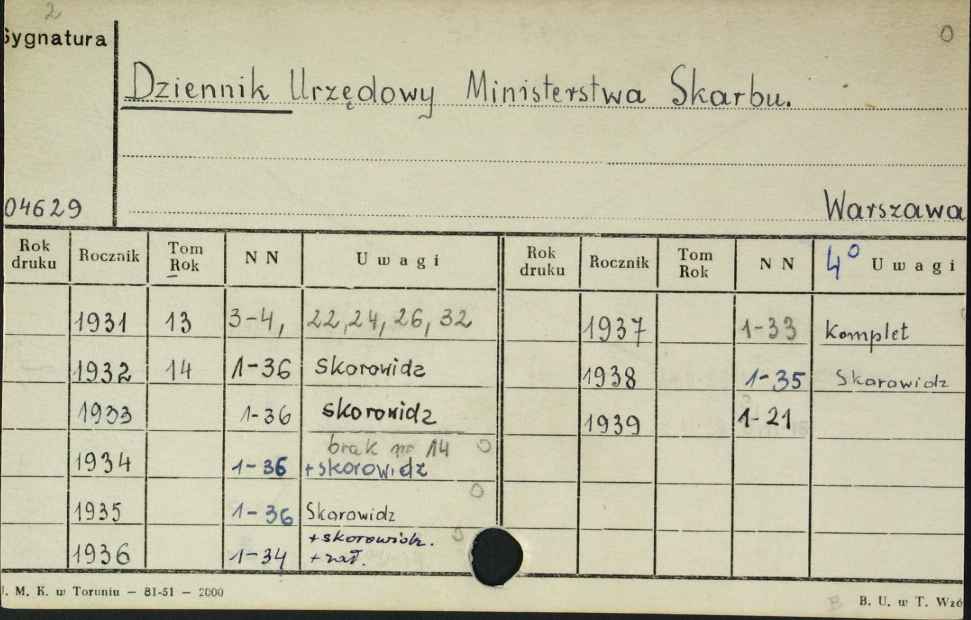 2
Sygnatura
0
Dziennik Urzędowy Ministerstwa Skarbu.
04629
Warszawa
Rok druku Rocznik Tom Rok NN Uwagi Rok druku Rocznik Tom Rok NN 4° Uwagi
1931 13 3-4, 22, 24, 26, 32 1937 1-33 komplet
1932 14 1-36 Skorowidz 1938 1-35 Skorowidz
1933 1-36 skorowidz 1939 1-21
brak nr 14 0
1934 1-36 + skorowidz
0
1935 1-36 Skorowidz
+ skorowidz.
1936 1-34 + zał.
J. M. K. w Toruniu — 81-51 — 2000
B B. U. w T. Wzó